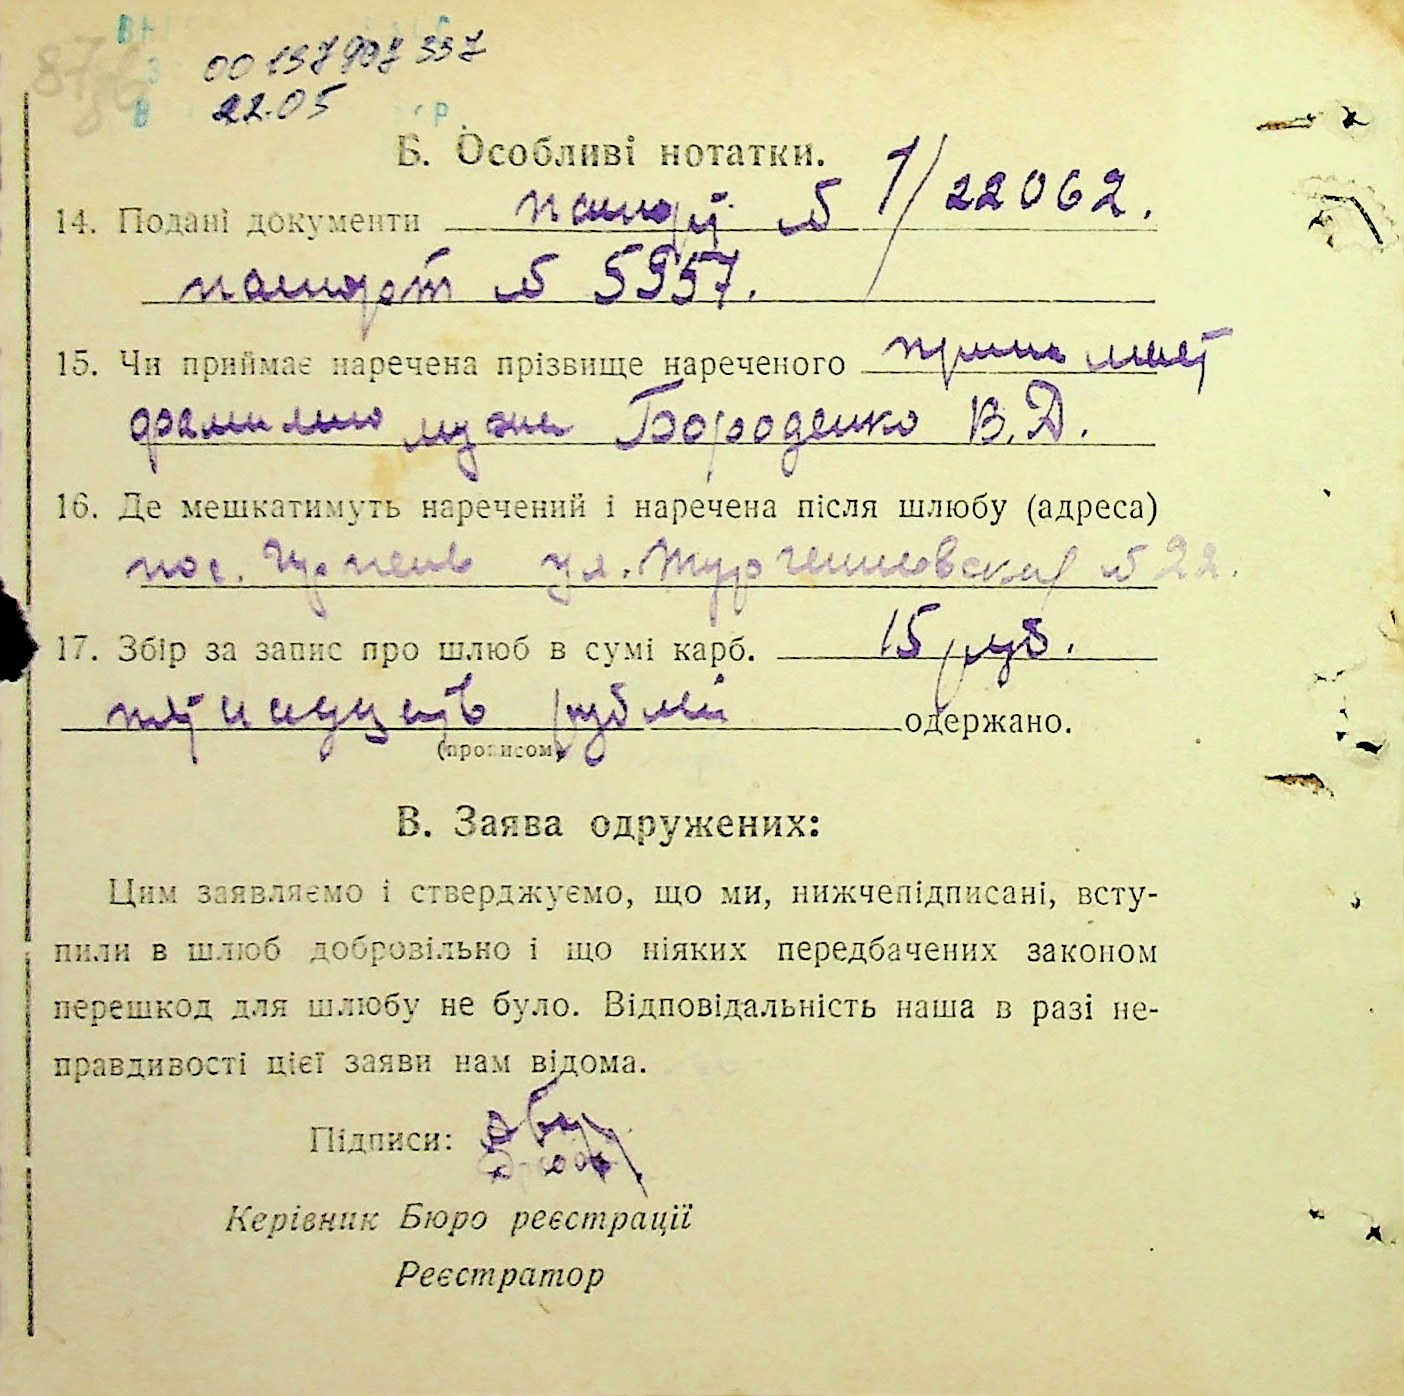 00137907337
22.05
Б. Особливі нотатки.
14. Подані документи паспорт № 1/22062.
паспорт № 5957.
15. Чи приймає наречена прізвище нареченого принимает
фамилию мужа Бороденко В.Д.
16. Де мешкатимуть наречений і наречена після шлюбу (адреса)
пос. Ирпень ул. Тургеневская № 22.
17. Збір за запис про шлюб в сумі карб. 15 руб.
пятнадцать рублей одержано.
(прописом)
В. Заява одружених:
Цим заявляємо і стверджуємо, що ми, нижчепідписані, всту-
пили в шлюб добровільно і що ніяких передбачених законом
перешкод для шлюбу не було. Відповідальність наша в разі не-
правдивості цієї заяви нам відома.
Підписи:
Керівник Бюро реєстрації
Реєстратор